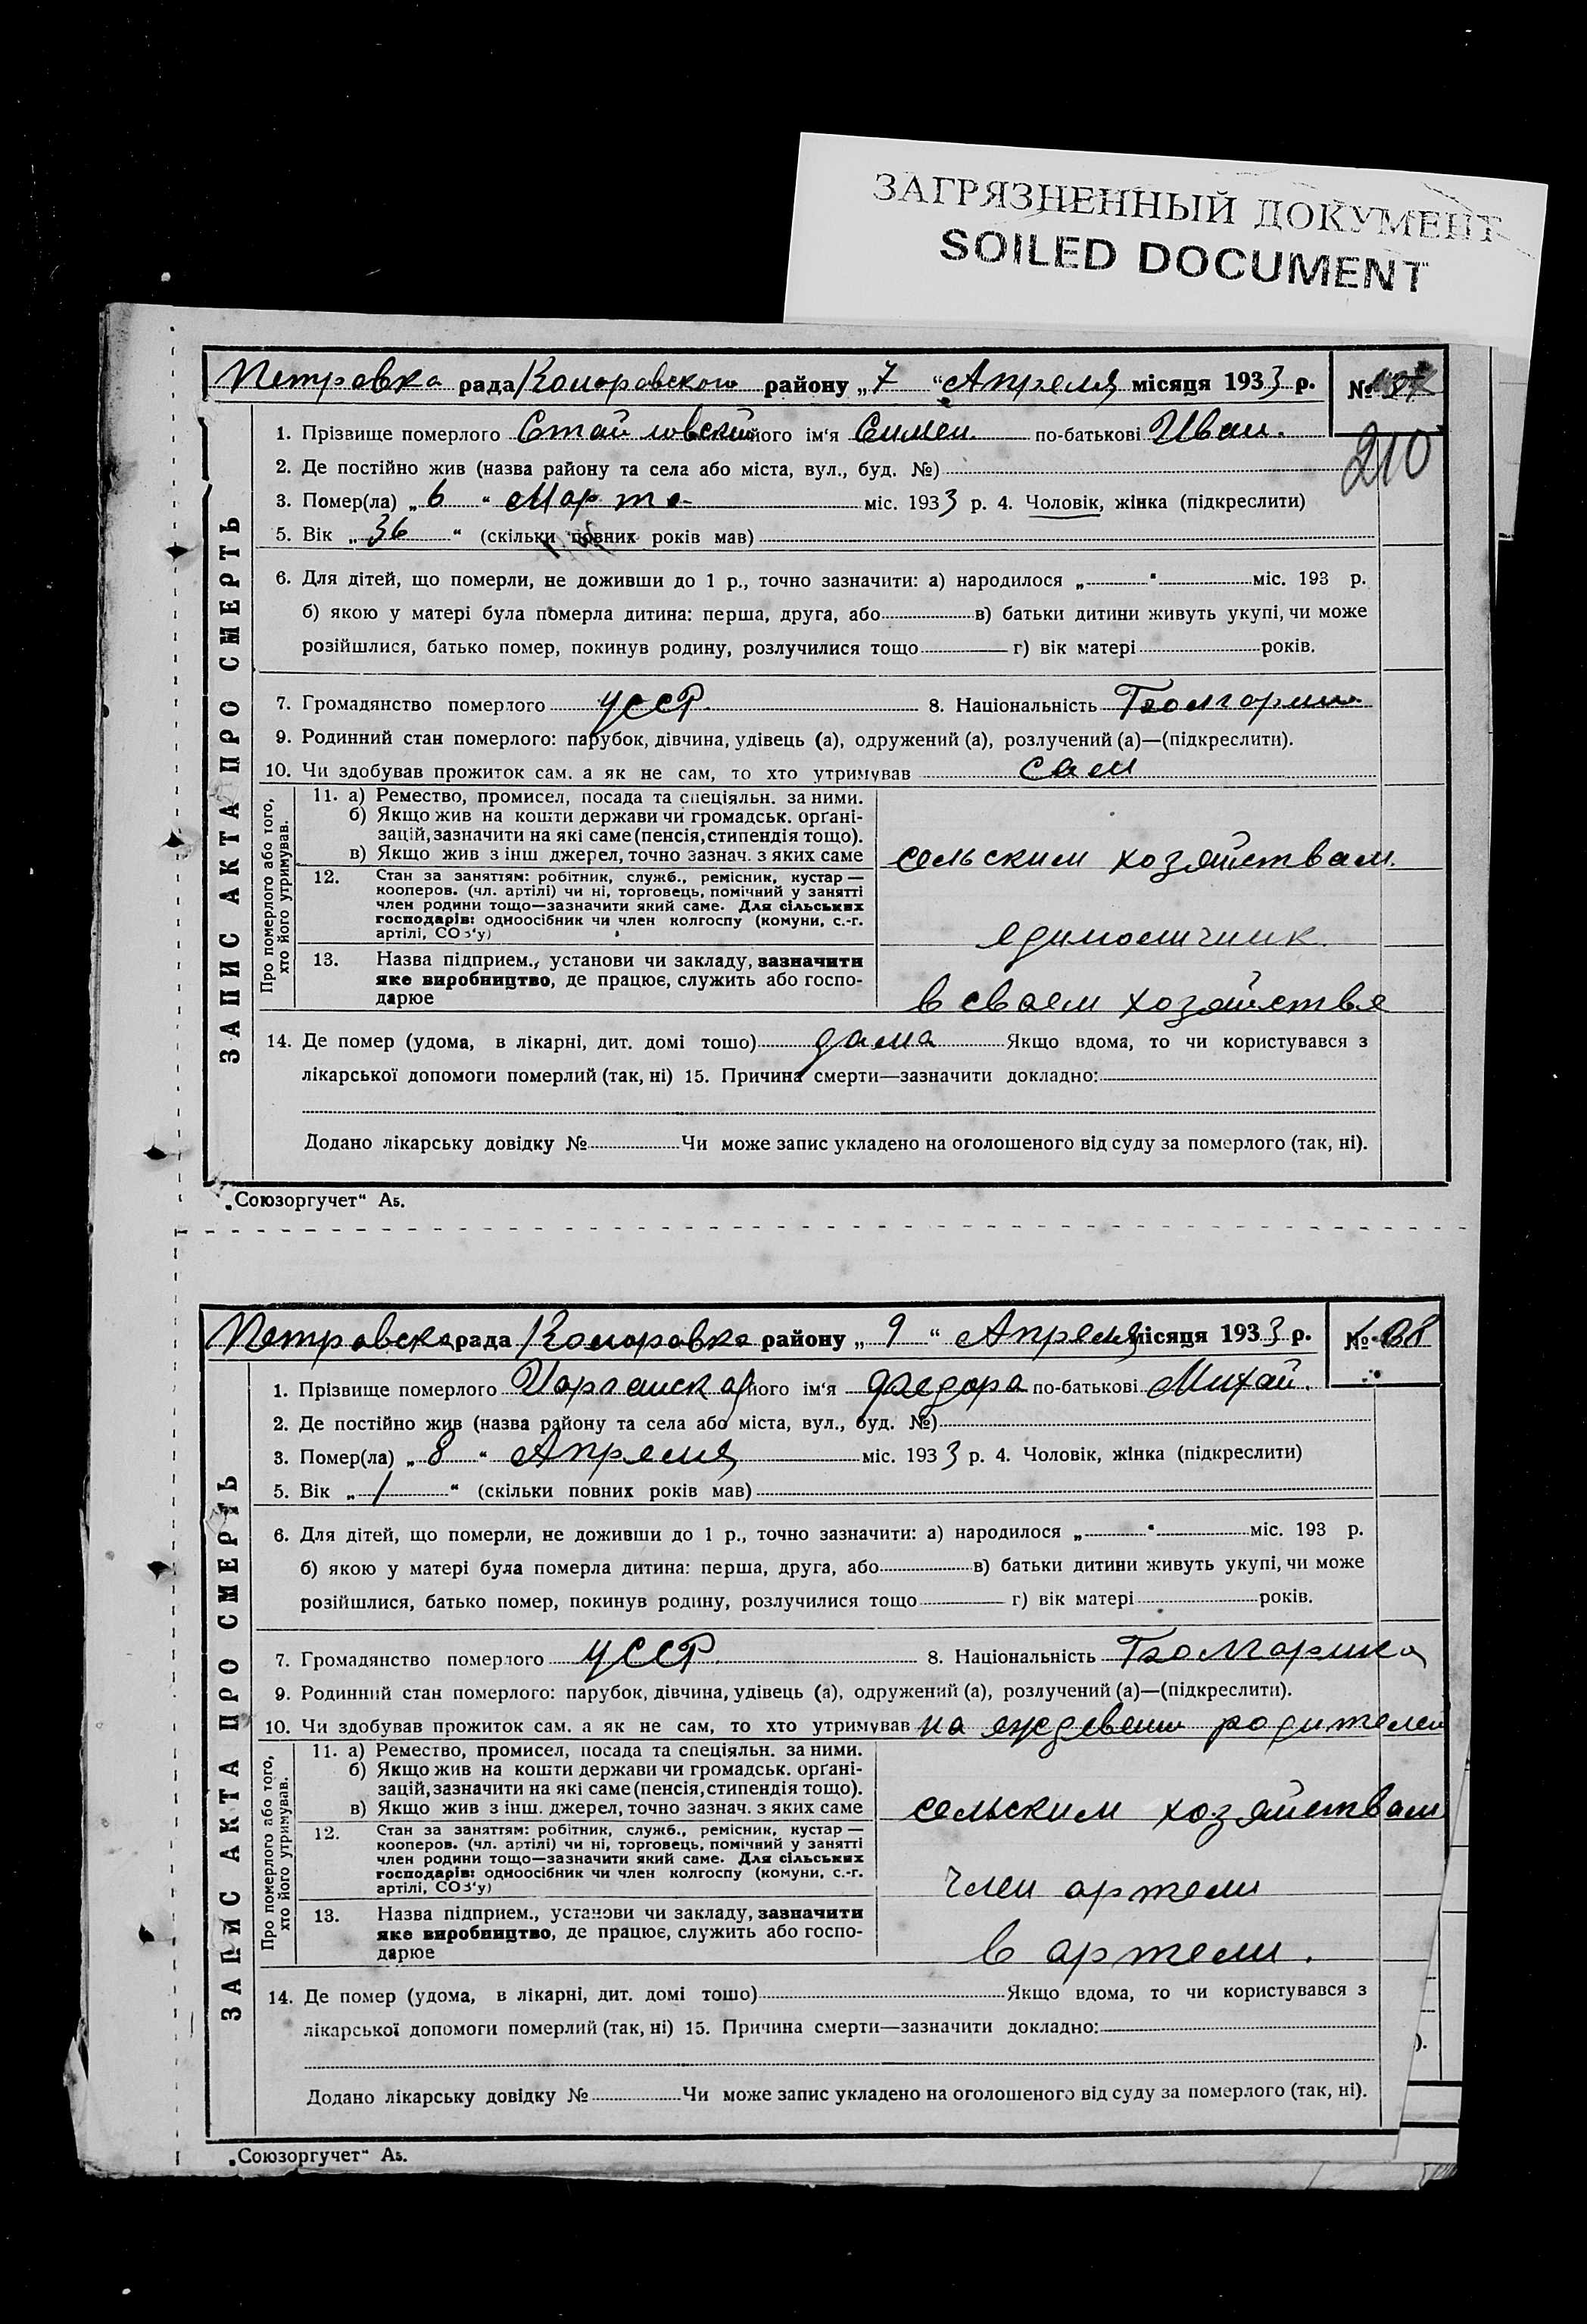 ЗАГРЯЗНЕННЫЙ ДОКУМЕНТ
SOILED DOCUMENT
Петровка рада Коларовского району „7“ Апреля місяця 1933 р. №
210
1. Прізвище померлого Стайловский його ім'я Симен. по-батькові Иван.
2. Де постійно жив (назва району та села або міста, вул., буд. №)
3. Помер(ла) „6“ Марта міс. 1933 р. 4. Чоловік, жінка (підкреслити)
5. Вік „36“ (скільки повних років мав)
6. Для дітей, що померли, не доживши до 1 р., точно зазначити: а) народилося „ “ міс. 193 р.
б) якою у матері була померла дитина: перша, друга, або в) батьки дитини живуть укупі, чи може
розійшлися, батько помер, покинув родину, розлучилися тощо г) вік матері років.
7. Громадянство померлого УССР. 8. Національність
9. Родинний стан померлого: парубок, дівчина, удівець (а), одружений (а), розлучений (а)—(підкреслити).
10. Чи здобував прожиток сам. а як не сам, то хто утримував сам
ЗАПИС АКТА ПРО СМЕРТЬ
Про померлого або того,
хто його утримував.
11. а) Ремество, промисел, посада та спеціяльн. за ними.
б) Якщо жив на кошти держави чи громадськ. орґані-
зацій, зазначити на які саме (пенсія, стипендія тощо).
в) Якщо жив з інш джерел, точно зазнач. з яких саме
сельским хозяйствам.
12. Стан за заняттям: робітник, служб., ремісник, кустар —
кооперов. (чл. артілі) чи ні, торговець, помічний у занятті
член родини тощо—зазначити який саме. Для сільських
господарів: одноосібник чи член колгоспу (комуни, с.-г.
артілі, СОЗ'у)
единоличник.
13. Назва підприєм., установи чи закладу, зазначити
яке виробництво, де працює, служить або госпо-
дарює
в сваем хозяйстве
14. Де помер (удома, в лікарні, дит. домі тошо) дама Якщо вдома, то чи користувався з
лікарської допомоги померлий (так, ні) 15. Причина смерти—зазначити докладно:
Додано лікарську довідку № Чи може запис укладено на оголошеного від суду за померлого (так, ні).
„Союзоргучет“ А5.
Петровска рада Коларовка району „9“ Апреля місяця 1933 р. №
1. Прізвище померлого його ім'я Федора по-батькові Михай.
2. Де постійно жив (назва району та села або міста, вул., буд. №)
3. Помер(ла) „8“ Апреля міс. 1933 р. 4. Чоловік, жінка (підкреслити)
5. Вік „1“ (скільки повних років мав)
6. Для дітей, що померли, не доживши до 1 р., точно зазначити: а) народилося „ “ міс. 193 р.
б) якою у матері була померла дитина: перша, друга, або в) батьки дитини живуть укупі, чи може
розійшлися, батько помер, покинув родину, розлучилися тощо г) вік матері років.
7. Громадянство померлого УССР. 8. Національність
9. Родинний стан померлого: парубок, дівчина, удівець (а), одружений (а), розлучений (а)—(підкреслити).
10. Чи здобував прожиток сам. а як не сам, то хто утримував на родителей
ЗАПИС АКТА ПРО СМЕРТЬ
Про померлого або того,
хто його утримував.
11. а) Ремество, промисел, посада та спеціяльн. за ними.
б) Якщо жив на кошти держави чи громадськ. орґані-
зацій, зазначити на які саме (пенсія, стипендія тощо).
в) Якщо жив з інш. джерел, точно зазнач. з яких саме
сельским хозяйствам
12. Стан за заняттям: робітник, служб., ремісник, кустар —
кооперов. (чл. артілі) чи ні, торговець, помічний у занятті
член родини тощо—зазначити який саме. Для сільських
господарів: одноосібник чи член колгоспу (комуни, с.-г.
артілі, СОЗ'у)
член артели
13. Назва підприєм., установи чи закладу, зазначити
яке виробництво, де працює, служить або госпо-
дарює
в артели.
14. Де помер (удома, в лікарні, дит. домі тошо) Якщо вдома, то чи користувався з
лікарської допомоги померлий (так, ні) 15. Причина смерти—зазначити докладно:
Додано лікарську довідку № Чи може запис укладено на оголошеного від суду за померлого (так, ні).
„Союзоргучет“ А5.